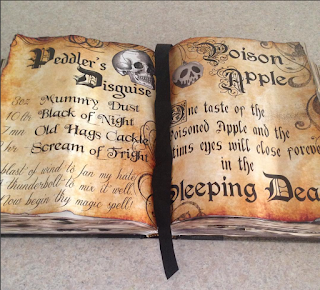 Peddler's
Disguise
Mummy Dust
Black of Night
Old Hags Cackle
Scream of Fright
blast of wind to fan my hate
thunderbolt to mix it well
Now begin thy magic spell!
Poison
Apple
One taste of the
Poisoned Apple and the
tims eyes will close foreve
in the
Sleeping Dea